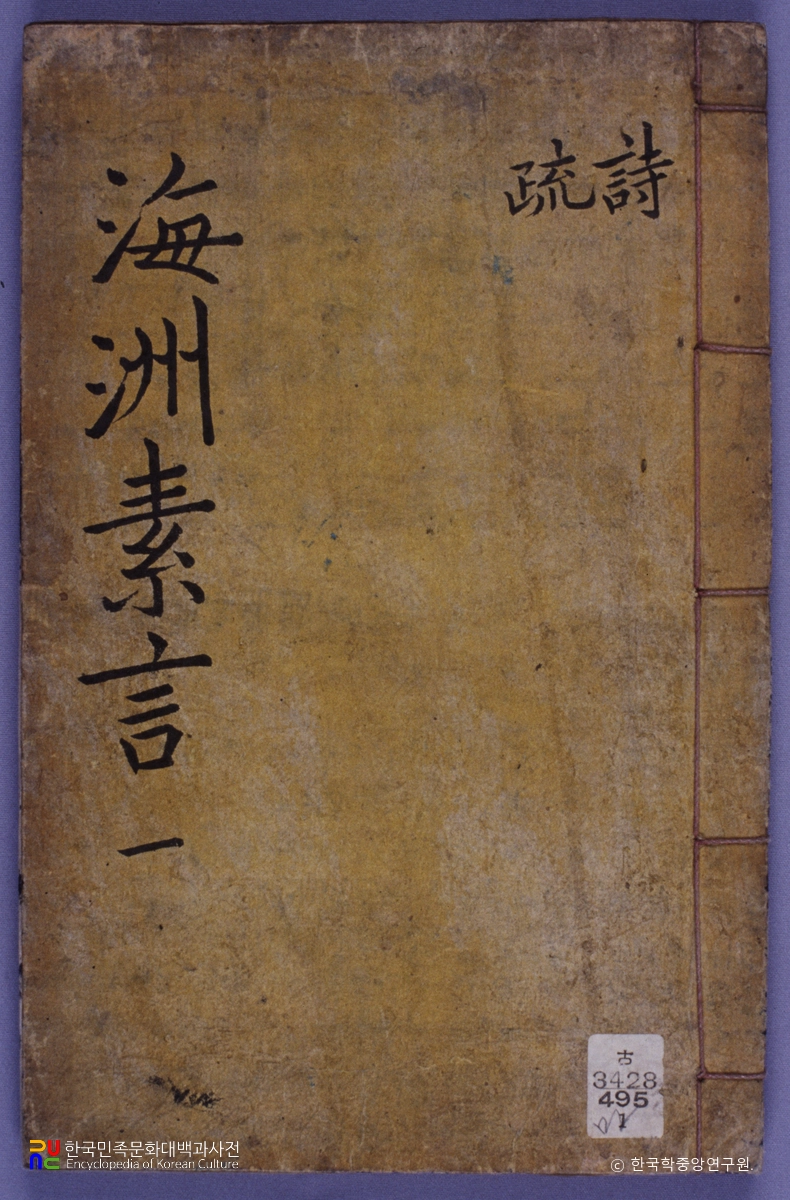 詩疏
海洲素言 一
古
3428
495
1
한국민족문화대백과사전
Encyclopedia of Korean Culture
© 한국학중앙연구원